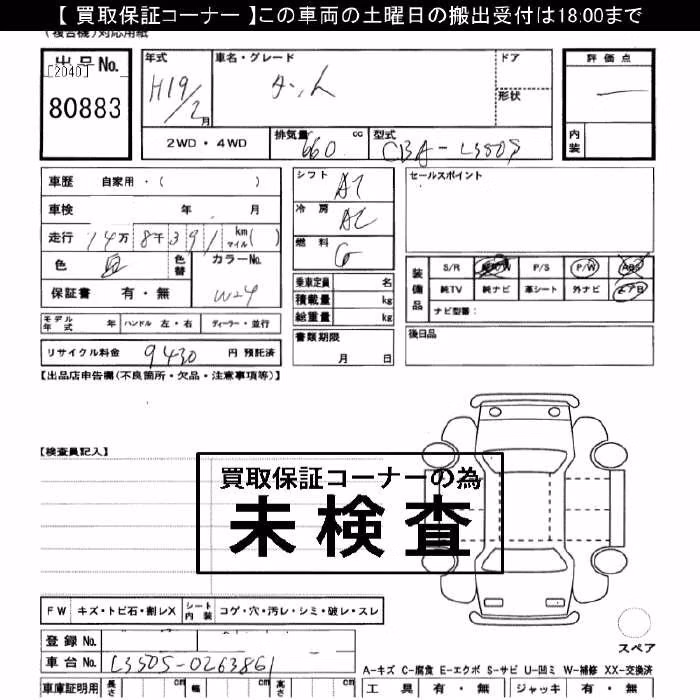 【 買取保証コーナー 】この車両の土曜日の搬出受付は18:00まで
(複合機)対応用紙
出品No.
[2040]
80883
年式
H19/2月
車名・グレード
ドア
形状
評価点
内装
2WD・4WD
排気量 660 cc
型式 CBA-L350S
車歴 自家用・( )
車検 年 月
走行 14万8千391 km マイル( )
色
色替
カラーNo.
W24
保証書 有・無
モデル年式 年 ハンドル 左・右 ディーラー・並行
リサイクル料金 9430 円 預託済
シフト AT
冷房 AC
燃料 G
乗車定員 名
積載量 kg
総重量 kg
書類期限
月 日
セールスポイント
装備品
S/R P/S P/W ABS
純TV 純ナビ 革シート 外ナビ エアB
ナビ型番:
後日品
【出品店申告欄(不良箇所・欠品・注意事項等)】
【検査員記入】
買取保証コーナーの為
未検査
FW キズ・トビ石・割レX シート内装 コゲ・穴・汚レ・シミ・破レ・スレ
登録No.
車台No. L350S-0263861
スペア
A-キズ C-腐食 E-エクボ S-サビ U-凹ミ W-補修 XX-交換済
車庫証明用 長さ cm 幅 cm 高さ cm
工具 有・無 ジャッキ 有・無